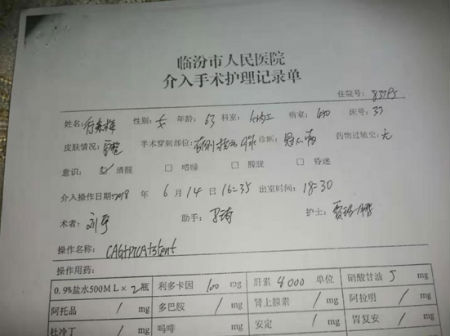 临汾市人民医院
介入手术护理记录单
住院号:
姓名: 性别:女 年龄:63 科室: 病室: 床号:33
皮肤情况: 手术穿刺部位: 诊断:冠心病 药物过敏史:无
意识: 清醒 □ 嗜睡 □ 朦胧 □ 昏迷
介入操作日期:2018 年 6月14日16:35 出室时间:18:30
术者: 助手: 护士:
操作名称:CAG+PTCA+Stent
操作用药:
0.9%盐水500ML×2瓶 利多卡因 100 mg 肝素 4000 单位 硝酸甘油 5 mg
阿托品 / mg 多巴胺 / mg 肾上腺素 / mg 阿拉明 / mg
杜冷丁 mg 吗啡 mg 安定 mg 胃复安 mg